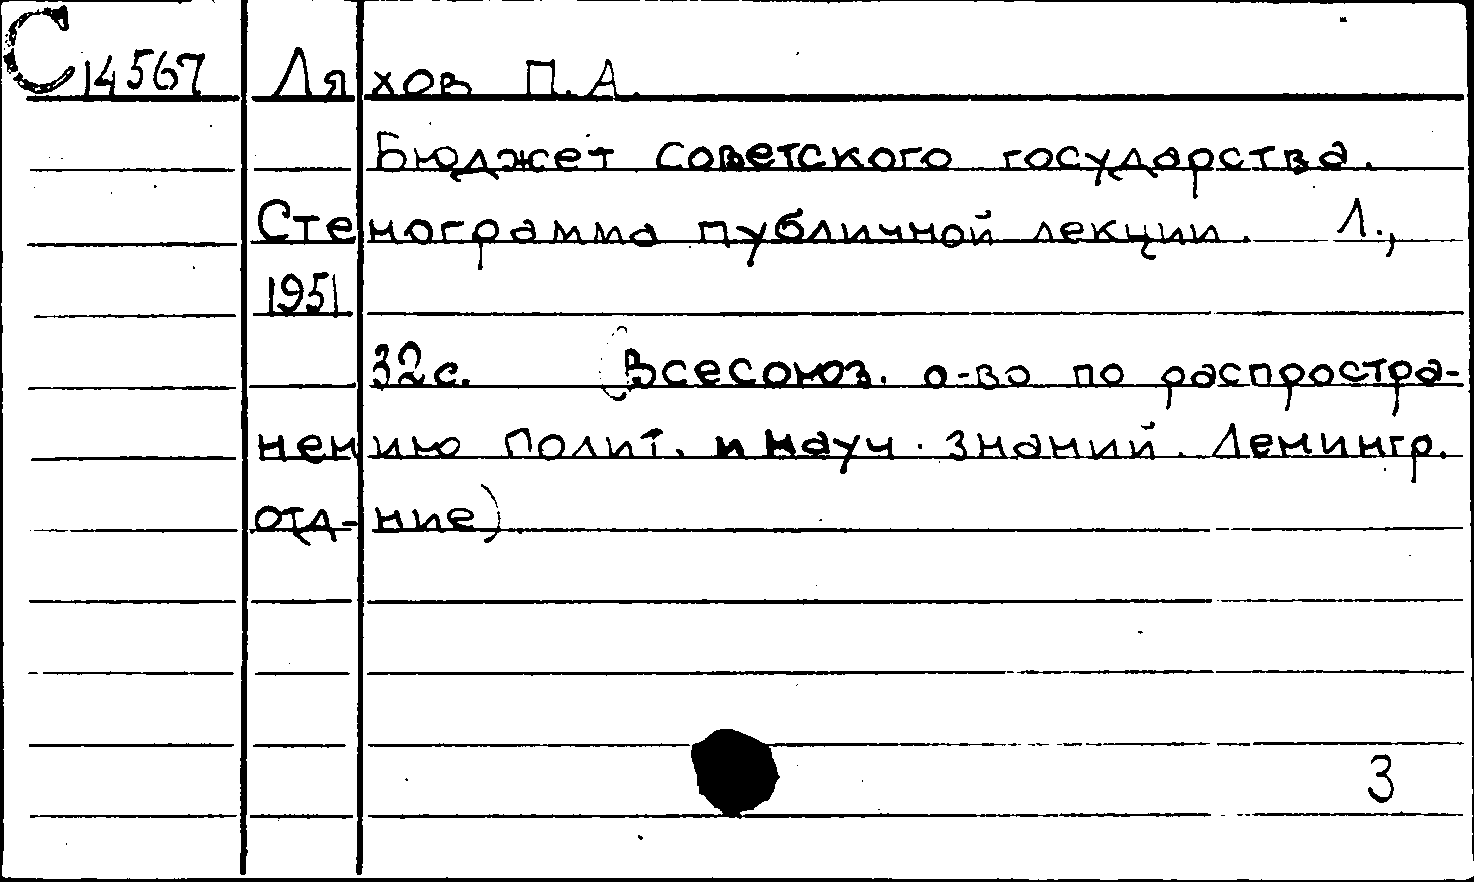 С 14567 Ляхов П.А.
Бюджет советского государства.
Стенограмма публичной лекции. Л.,
1951
32с. (Всесоюз. о-во по распростра-
нению полит. и науч. знаний. Ленингр.
отд-ние)
3